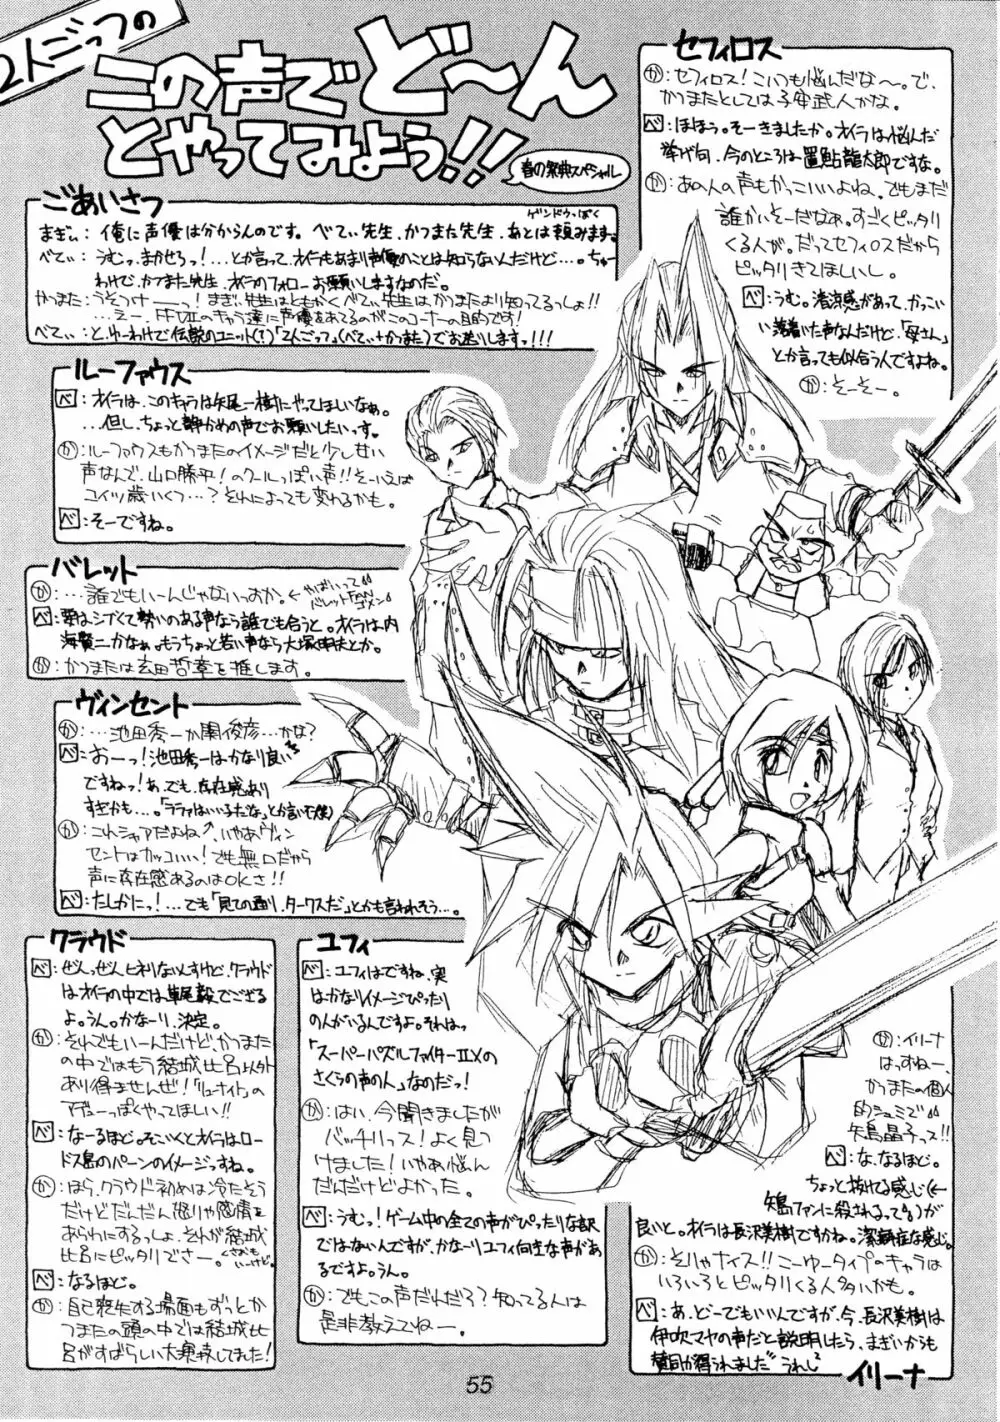 2人ごっつの
この声でど〜ん
とやってみよう!!
春の祭典スペシャル
ごあいさつ
ゲンドウっぽく
まぎぃ：俺に声優は分からんのです。べてぃ先生、かつまた先生、あとは頼みます。
べてぃ：うむっ、まかせろっ！…とか言って、オイラもあまり声優のことは知らないんだけど…。ちゅー
わけで、かつまた先生、オイラのフォローお願いしますなのだ。
かつまた：うそつけーーっ！まぎぃ先生はともかくべてぃ先生はかつまたより知ってるっしょ!!
…えー、FFⅦのキャラ達に声優をあてるのがこのコーナーの目的です！
べてぃ：と、ゆーわけで伝説のユニット(?)「2人ごっつ」(べてぃ+かつまた)でお送りしますっ!!!
セフィロス
か：セフィロス！こいつも悩んだな〜。で、
かつまたとしては子安武人かな。
べ：ほほう。そーきましたか。オイラは悩んだ
挙げ句、今のところは置鮎龍太郎ですな。
か：あの人の声もかっこいいよね、でもまだ
誰かいそーだなぁ。すごくピッタリ
くる人が。だってセフィロスだから
ピッタリきてほしいし。
べ：うむ。清涼感があって、かっこい
い落着いた声なんだけど、「母さん」
とか言っても似合う人ですよね。
か：そーそー。
ルーファウス
べ：オイラは、このキャラは矢尾一樹にやってほしいなぁ。
…但し、ちょっと静かめの声でお願いしたいっす。
か：ルーファウスもかつまたのイメージだと少し甘い
声なんで、山口勝平！のクールっぽい声!!そーいえば
コイツ歳いくつ…？それによっても変わるかも。
べ：そーですね。
バレット
か：…誰でもいーんじゃないっすか。←やばいって
バレットFANゴメン
べ：要はシブくて勢いのある声なら誰でも合うと。オイラは内
海賢二かなぁ。もうちょっと若い声なら大塚明夫とか。
か：かつまたは玄田哲章を推します。
ヴィンセント
か：…池田秀一か関俊彦…かな？
べ：おーっ！池田秀一はかなり良い
ですねっ！あ、でも、存在感あり
すぎかも…。「ララァはいい子だな」とか言いそ(笑)
か：これシャアだよね、いやあヴィン
セントはカッコいい！でも無口だから
声に存在感あるのはOKさ!!
べ：たしかにっ！…でも「見ての通り、タークスだ」とかも言われそう…。
クラウド
べ：ぜんっぜんヒネリないんすけど、クラウド
はオイラの中では草尾毅でござる
よ。うん。かなーり、決定。
か：それでもいーんだけど、かつまた
の中ではもう結城比呂以外
あり得ませんぜ！「リューナイト」の
アデューっぽくやってほしい!!
べ：なーるほど。そこいくとオイラはロー
ドス島のパーンのイメージっすね。
か：ほら、クラウド初めは冷たそう
だけどだんだん怒りや感情を
あらわにするっしょ、それが結城
比呂にピッタリでさー。
べ：なるほど。
か：自己喪失する場面もずっとか
つまたの頭の中では結城比
呂がすばらしい大熱演してました！
ユフィ
べ：ユフィはですね、実
はかなりイメージぴったり
の人がいるんですよ。それはっ
「スーパーパズルファイターⅡXの
さくらの声の人」なのだっ！
か：はい、今聞きましたが
バッチリっス！よく見つ
けました！いやあ悩ん
だんだけどよかった。
べ：うむっ！ゲーム中の全ての声がぴったりな訳
ではないんですが、かなーりユフィ向きな声があ
るですよ。うん。
か：でもこの声だんだろ？知ってる人は
是非教えてねー。
か：イリーナ
は、すねー、
かつまたの個人
的シュミで
矢島晶子っス!!
べ：な、なるほど。
ちょっと抜けてる感じ(←
矢島ファンに殺されるってな)が
良いと。オイラは長沢美樹ですかね。潔癖症な感じ。
か：そりゃナイス!!こーゆータイプのキャラは
いろいろとピッタリくる人多いかも。
べ：あ、どーでもいいんですが、今、長沢美樹は
伊吹マヤの声だと説明したら、まぎぃからも
賛同が得られました うれしー
イリーナ
55